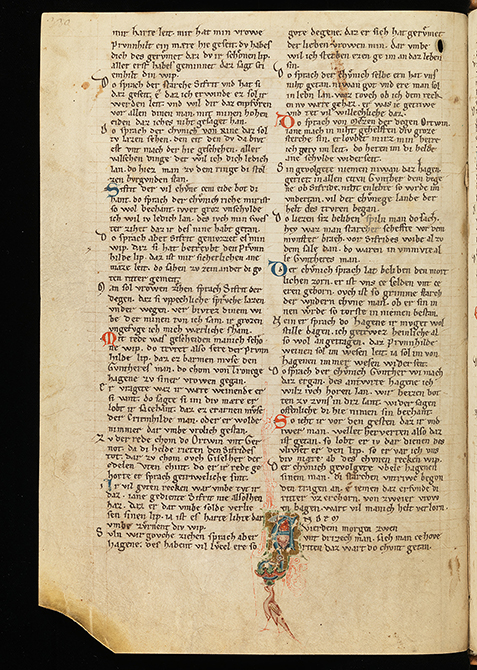 mir harte leit. mir hat min vrowe
Prvnnhilt ein mære hie geseit. dv habes
dich des gervmet daz dv ir schonen lip.
aller erst habes geminnet daz sagt fro
emhilt din wip.
Do sprach der starche Sifrit vnd hat si
daz geseit. e daz ich erwinde ez sol ir
werden leit. vnd wil dir daz enpfvren
vor allen dinen man. mit minen hohen
eiden daz ichs niht gesaget han.
Do sprach der chvnich von Rine daz sol
tv lazen sehen. den eit den dv da bivtest
mach der hie geschehen. aller
valschen dinge der wil ich dich ledich
lan. do hiez man zv dem ringe di stol
zen bvrgonden stan.
Sifrit der vil chvne zem eide bot di
hant. do sprach der chvnich riche mir ist
so wol bechant. iwer groz vnschvlde
ich wil iv ledich lan. des ivch min swes
ter zihet daz ir des niene habt getan.
Do sprach aber Sifrit genivzet es min
wip. daz si hat betrvebt den Prvnn
hilde lip. daz ist mir sicherlichen ane
maze leit. do sahen zv zein ander di go
ten ritter gemeit.
Man sol vrowen ziehen sprach Sifrit der
degen. daz si vppechliche sprvche lazen
vnder wegen. verbivtez dinem wi
be der minen tvn ich sam. ir grozen
vngefvge ich mich wærliche scham.
Mit rede was gescheiden manich scho
ne wip. do trvret also sere der Prvnn
hilde lip. daz ez barmen mvse den
Gvntheres man. do chom von Tronege
hagene zv siner vrowen gegan.
Er vragete waz ir wære weinende er
si vant. do sagte si im div mære er
lobt ir sa zehant. daz ez erarnen mvse
der Criemhilde man. oder er wolde
nimmer dar vmbe vrolich gestan.
Zv der rede chom do Ortwin vnt Ger
not. da di helde rieten den Sifrides
tot. dar zv chom ovch Giselher der
edelen Vten chint. do er ir rede ge
horte er sprach getriwliche sint.
Ir vil guten recken war vmbe tvt ir
daz. iane gediente Sifrit nie alsolhen
haz. daz er dar vmbe solde verlie
sen sinen lip. ia ist es harte lihte dar
vmbe zvrnent div wip.
Svln wir govche ziehen sprach aber
hagene. des habent vil lvcel ere so
gote degene. daz er sich hat gervmet
der lieben vrowen min. dar vmbe
wil ich sterben ez enge im an daz leben
sin.
Do sprach der chvnich selbe ern hat vns
niht getan. niwan gvt vnd ere man sol
in leben lan. waz tovch ob ich dem recken
nv wære gehaz. er was ie getriwe
vnd tet vil willechliche daz.
Do sprach von Mezen der degen Ortwin.
iane mach in niht gehelfen div groze
sterche sin. erlovbet mirz min herre
ich getvn im leit. do heten im di helde
ane schvlde widerseit.
Sin gevolgete niemen niwan daz hagen.
geriet in allen ziten Gvnther dem dege
ne ob Sifride niht enlebte so wrde im
vndertan. vil der chvnege lande der
helt des trvren began.
Do liezen siz beliben spiln man do sach.
hey waz man starcher scheffte vor dem
mvnster brach. vor Sifrides wibe al zv
dem sale dan. do waren in vnmvte al
le Gvntheres man.
Der chvnich sprach lat beliben den mort
lichen zorn. er ist vns ce selden vnt ce
eren geborn. ovch ist so grimme starch
der wndern chvne man. ob er sin in
nen wrde so torste in niemen bestan.
Nein er sprach do hagene ir mvget wol
stille dagen. ich getrvwez heinliche al
so wol an getragen. daz Prvnnhilde
weinen sol im wesen leit. ia sol im von
hagenen immer wesen widerseit.
Do sprach der chvnich Gvnther wi mach
daz ergan. des antwrte hagene ich
wilz ivch horen lan. wir heizzen bot
ten zv zvns in diz lant. wider sagen
offenliche di hie niemen sin bechant.
So iehet ir vor den gesten daz ir vnd
iwer man. wellet herverten also daz
ist getan. so lobt er iv dar dienes des
vlivset er den lip. so er var ich vns
div mære ab des chvnen recken wip.
Der chvnich gevolgete vbele hagenen
sinem man. di starchen vntriwe begon
den tragen an. e iemen daz erfvnde di
ritter vz erchorn. von zweier vrow
en bagen. wart vil manich helt verlorn.
An dem vierdem morgen zwen
vnt drizech man. sach man ce hove
riten daz wart do chvnt getan.